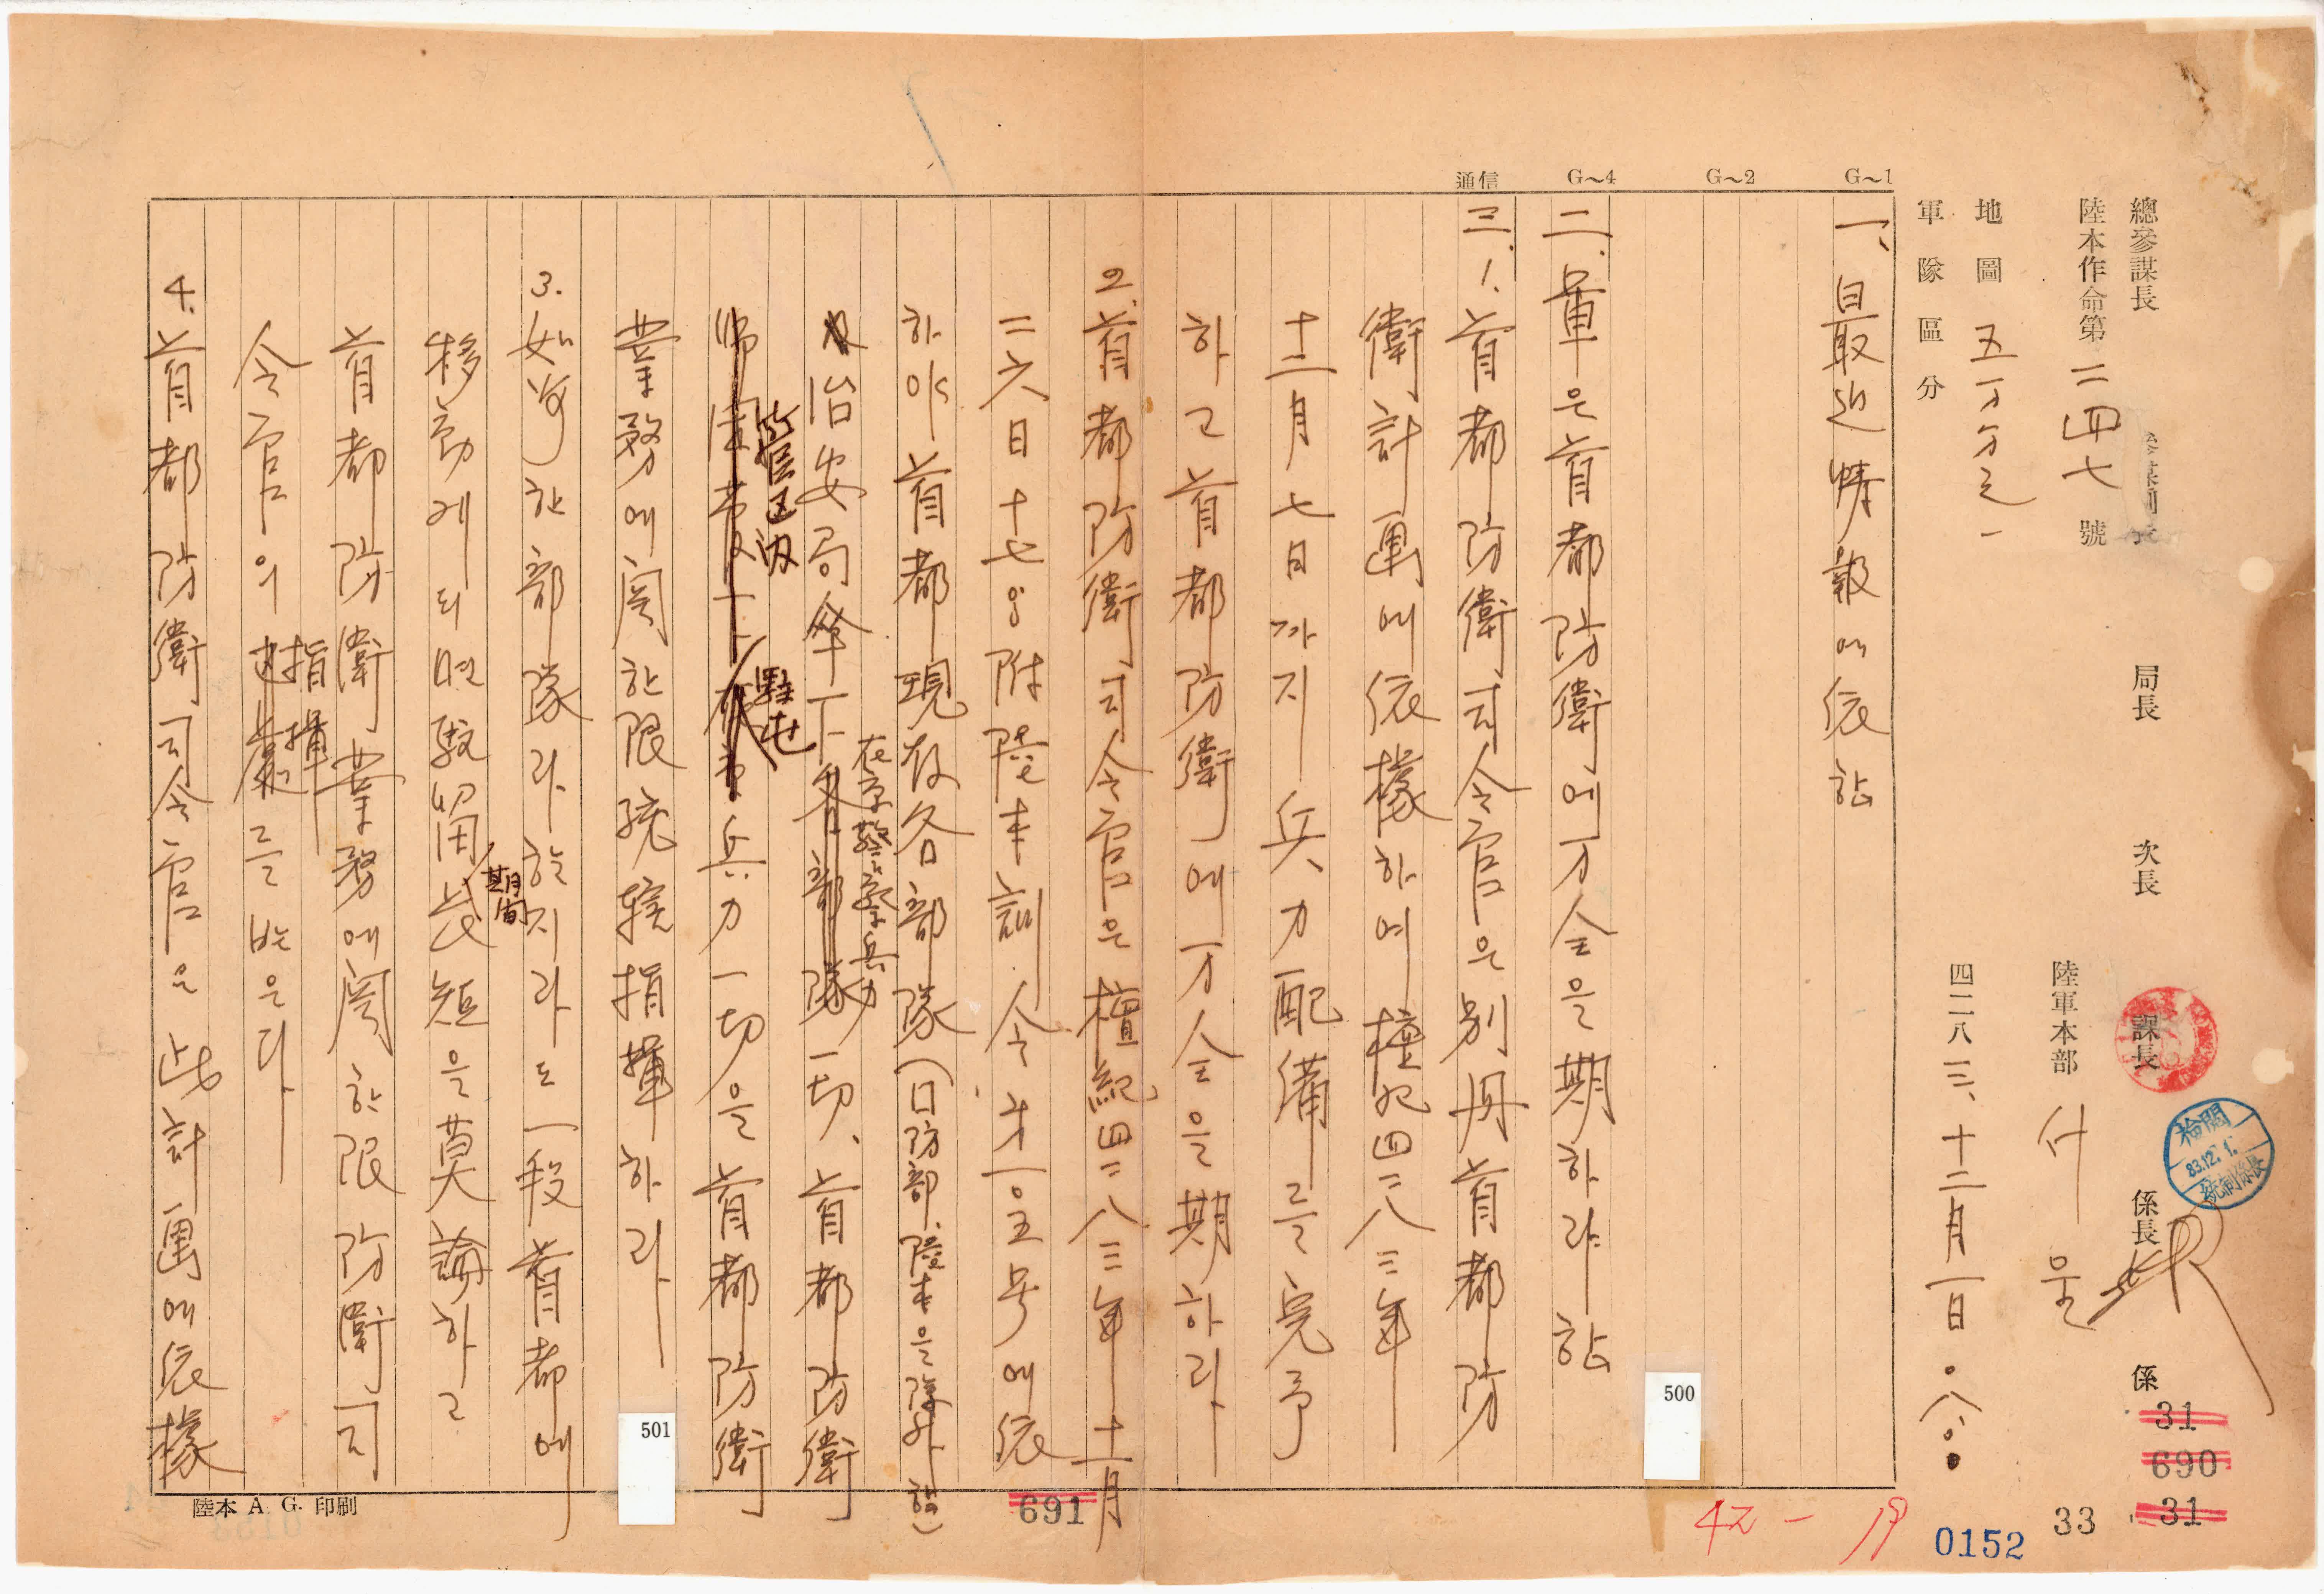 總參謀長 局長 次長 課長 係長 係
陸本作命第二四七號 陸軍本部
檢閱
83.12.1.
統制係長
地圖 五万分之一
四二八三、十二月一日〇八〇〇
軍隊區分
G~1
G~2
G~4
通信
一、最近情報에依함
二.軍은首都防衛에万全을期하랴함
三.1.首都防衛司令官은別冊首都防
衛計畫에依據하여檀紀四二八三年
十二月七日까지兵力配備를完了
하고首都防衛에万全을期하라
2.首都防衛司令官은檀紀四二八三年十一月
二六日十七〇附陸本訓令才一〇五号에依
하야首都現在各部隊(口防部,陸本은除外함)
在京警察兵力
治安局傘下各部隊一切、首都防衛
管区内
駐屯
兵力一切을首都防衛
業務에関한限統轄指揮하라
3.如何한部隊라하는지라도一段首都에
期間
移動게되면駐留長短을莫論하고
首都防衛業務에関한限防衛司
指揮
令官의를받은다
4.首都防衛司令官은此計畫에依據
陸本 A. G. 印刷
500
501
31
690
31
691
33
0152
42-19